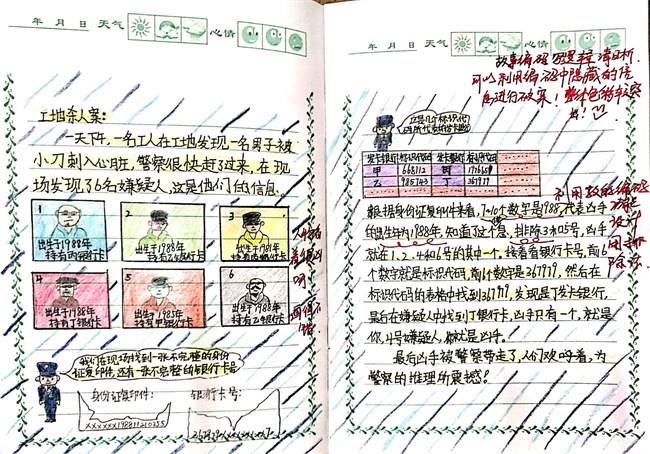 年 月 日 天气 心情
工地杀人案:
一天下午,一名工人在工地发现一名男子被
小刀刺入心脏,警察很快赶了过来,在现
场发现了6名嫌疑人,这是他们的信息。
1
出生于1988年
持有丙银行卡
2
出生于1988年
持有乙银行卡
3
出生于1981年
持有 银行卡
4
出生于1988年
持有丁银行卡
5
出生于1985年
持有甲银行卡
6
出生于1988年
持有乙银行卡
我们在现场找到一张不完整的身份
证复印件,还有一张不完整的银行卡号
身份证复印件:
银行卡号:
xxxxxx198811210255
年 月 日 天气 心情
故事编码 选择清晰
可以利用编码中隐藏的信
息进行破案!
这是几个标识代
发卡银行 标识代码 发卡银行 标识代码
甲 668112 丙
乙 985703 丁 367919
利用数字编码
根据身份证复印件来看,7~10个数字是1988,代表凶手
设计
的出生年为1988年,知道了这个信息,排除3和5号,凶手
排除法
就在1、2、4和6号的其中一个。接着看银行卡号,前6
个数字就是标识代码,前6个数字是367919,然后在
标识代码的表格中找到367919,发现是丁发卡银行,
最后在嫌疑人中找到丁银行卡,凶手只有一个,就是
你,4号嫌疑人,你就是凶手。
最后凶手被警察带走了,人们欢呼着,为
警察的推理所震撼!